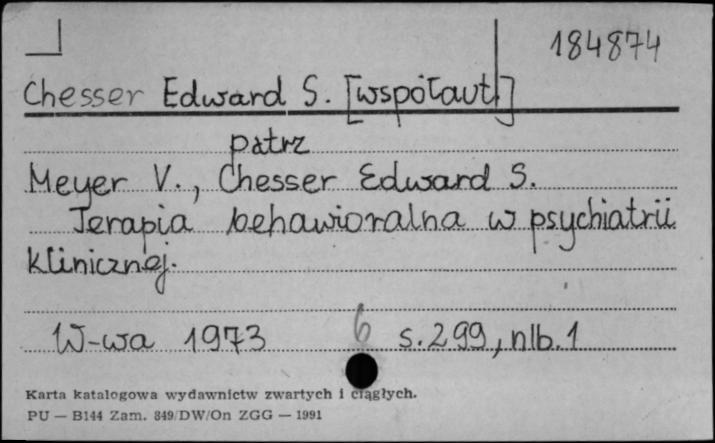 184874
Chesser Edward S. [współaut.]
patrz
Meyer V., Chesser Edward S.
Terapia behawioralna w psychiatrii
klinicznej.
W-wa 1973 6 s. 299, nlb. 1
Karta katalogowa wydawnictw zwartych i ciągłych.
PU — B144 Zam. 849/DW/On ZGG — 1991